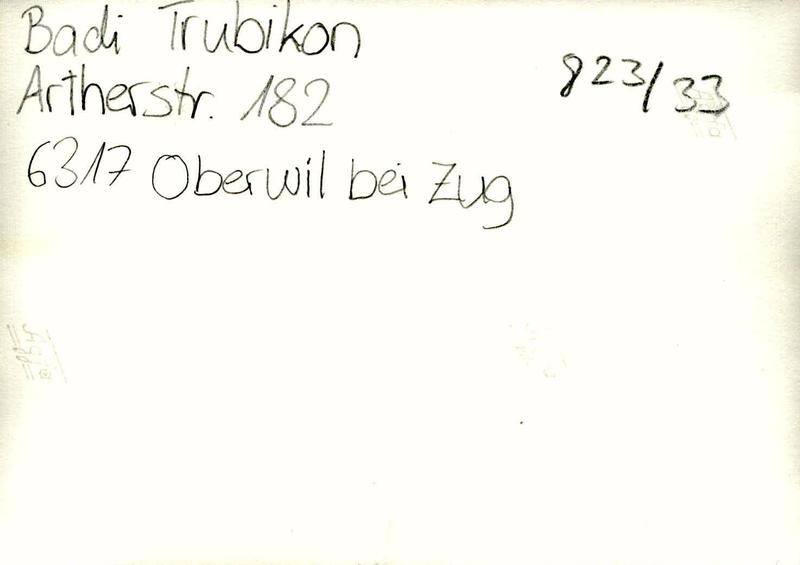 Badi Trubikon
Artherstr. 182
6317 Oberwil bei Zug
823/33